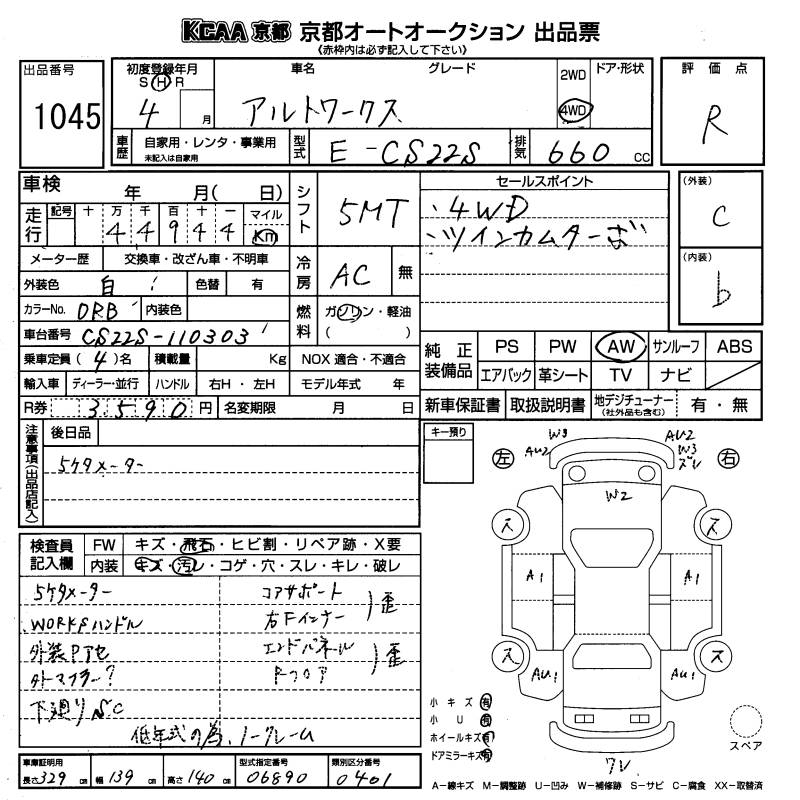 KCAA 京都 京都オートオークション 出品票
《赤枠内は必ず記入して下さい》
出品番号
1045
初度登録年月
S H R
4 月
車名 グレード
アルトワークス
2WD
4WD
ドア・形状
評価点
R
車歴 自家用・レンタ・事業用
未記入は自家用
型式 E-CS22S
排気 660 cc
車検 年 月( 日)
走行 記号 十 万 千 百 十 一 マイル
4 4 9 4 4 km
シフト 5MT
セールスポイント
・4WD
・ツインカムターボ
(外装)
C
(内装)
b
メーター歴 交換車・改ざん車・不明車
外装色 白 色替 有
冷房 AC 無
カラーNo. ORB 内装色
燃料 ガソリン・軽油
( )
車台番号 CS22S-110303
乗車定員(4)名 積載量 Kg NOX 適合・不適合
輸入車 ディーラー・並行 ハンドル 右H・左H モデル年式 年
R券 3590円 名変期限 月 日
純正装備品 PS PW AW サンルーフ ABS
エアバック 革シート TV ナビ
新車保証書 取扱説明書 地デジチューナー
(社外品も含む) 有・無
注意事項(出品店記入)
後日品
5ケタメーター
キー預り
左 右
W3
AU2
AU2
W3
ズレ
W2
ス ス
A1 A1
ス ス
AU1 AU1
検査員記入欄
FW キズ・飛石・ヒビ割・リペア跡・X要
内装 キズ・汚レ・コゲ・穴・スレ・キレ・破レ
5ケタメーター コアサポート
WORKSハンドル 右Fインナー )歪
外装Pアセ エンドパネル
外マフラー? Rフロア )歪
下廻りSC
低年式の為、ノークレーム
小キズ 有
小U 有
ホイールキズ 有
ドアミラーキズ 有
スペア
車庫証明用
長さ 329 cm 幅 139 cm 高さ 140 cm
型式指定番号
06890
類別区分番号
0401
A―線キズ M―調整跡 U―凹み W―補修跡 S―サビ C―腐食 XX―取替済